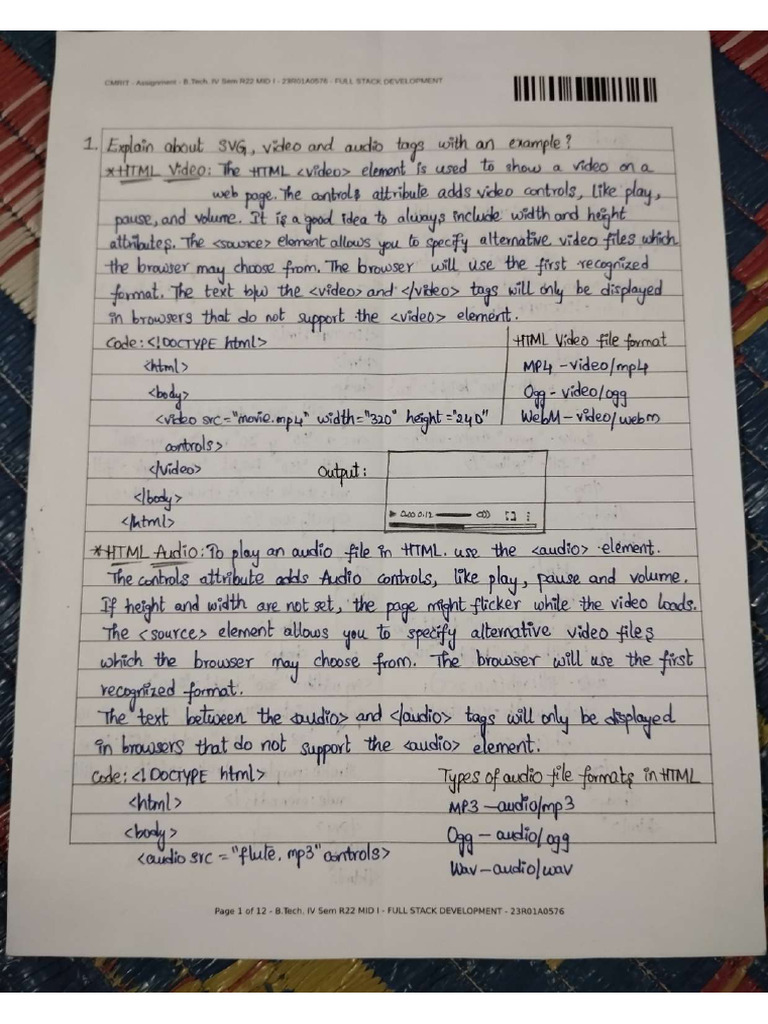 CMRIT - Assignment - B.Tech. IV Sem R22 MID I - 23R01A0576 - FULL STACK DEVELOPMENT
1. Explain about SVG, video and audio tags with an example?
*HTML Video: The HTML <video> element is used to show a video on a
web page. The controls attribute adds video controls, like play,
pause, and volume. It is a good idea to always include width and height
attributes. The <source> element allows you to specify alternative video files which
the browser may choose from. The browser will use the first recognized
format. The text b/w the <video> and </video> tags will only be displayed
in browsers that do not support the <video> element.
Code: <!DOCTYPE html>
<html>
<body>
<video src="movie.mp4" width="320" height="240"
controls>
</video>
</body>
</html>
HTML Video file format
MP4 - video/mp4
Ogg - video/ogg
WebM - video/webm
Output:
0:00 0:12
*HTML Audio: To play an audio file in HTML. use the <audio> element.
The controls attribute adds Audio controls, like play, pause and volume.
If height and width are not set, the page might flicker while the video loads.
The <source> element allows you to specify alternative video files
which the browser may choose from. The browser will use the first
recognized format.
The text between the <audio> and </audio> tags will only be displayed
in browsers that do not support the <audio> element.
Code: <!DOCTYPE html>
<html>
<body>
<audio src = "flute.mp3" controls>
Types of audio file formats in HTML
MP3 - audio/mp3
Ogg - audio/ogg
Wav - audio/wav
Page 1 of 12 - B.Tech. IV Sem R22 MID I - FULL STACK DEVELOPMENT - 23R01A0576